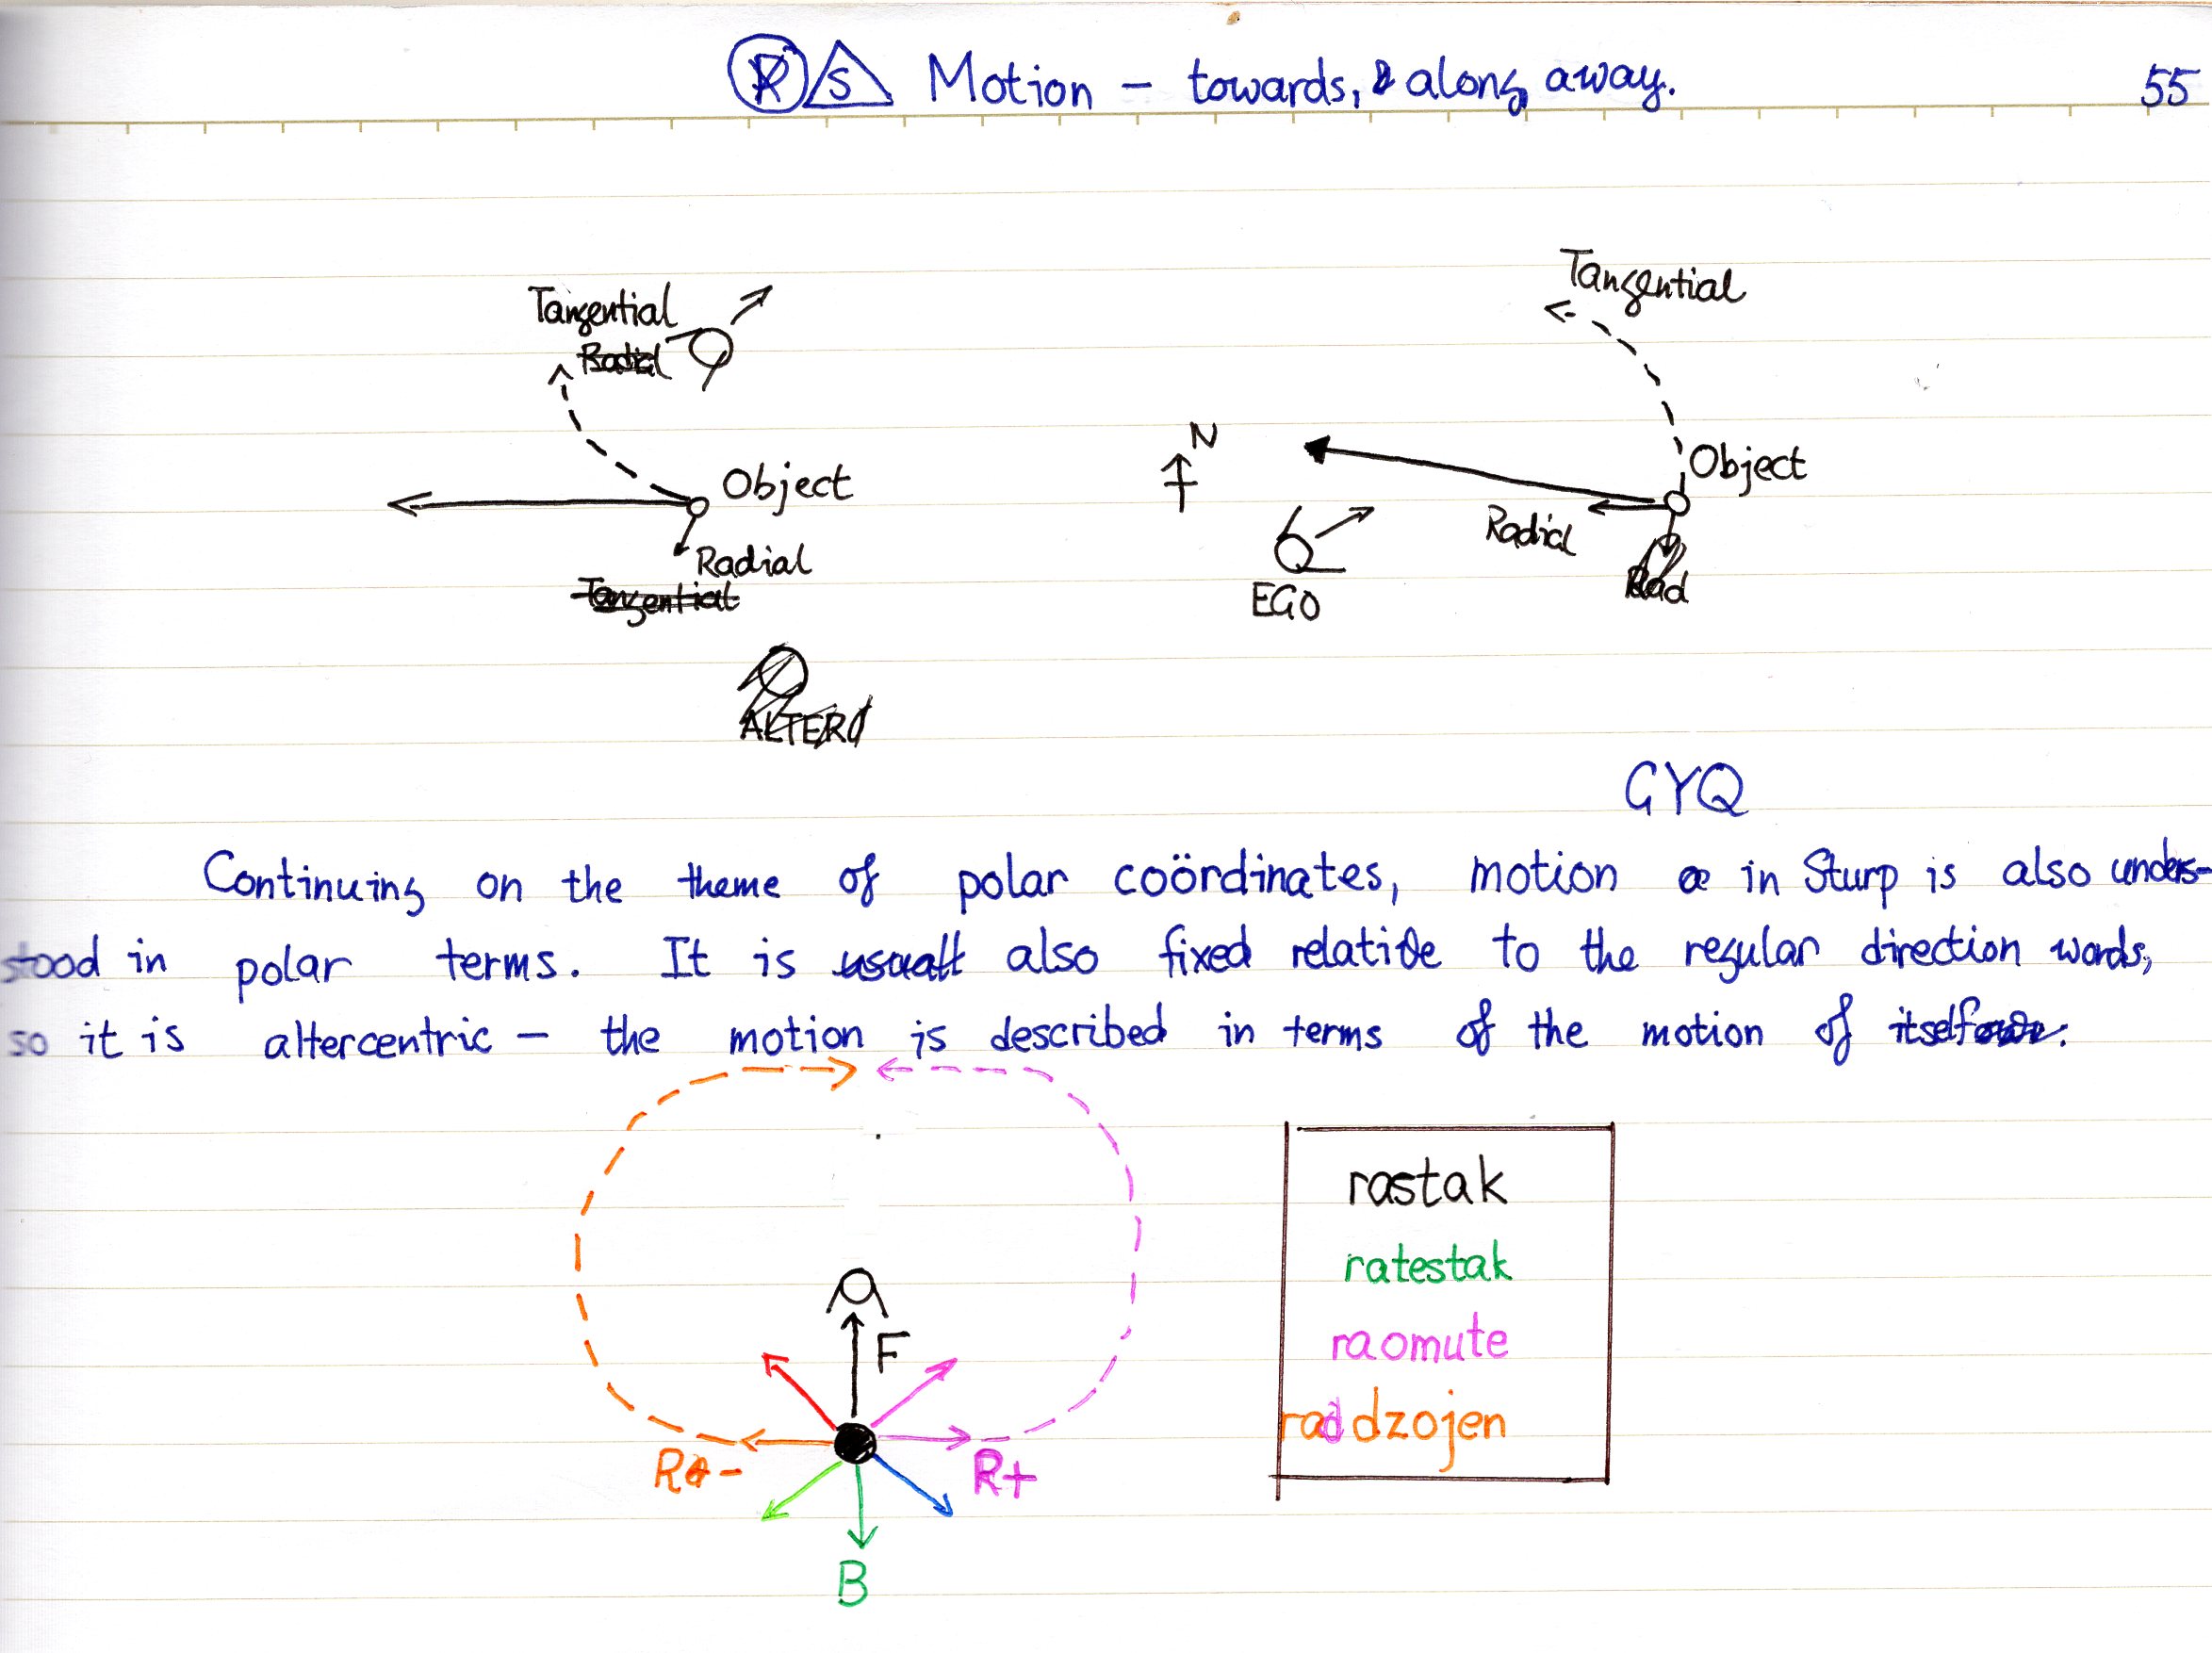 R S Motion – towards, & along, away. 55
Tangential
Radial
Object
Radial
Tangential
ALTER
Tangential
N
Object
Radial
EGO
Rad
GYQ
Continuing on the theme of polar coördinates, motion in Sturp is also unders-
tood in polar terms. It is usuall also fixed relative to the regular direction words,
so it is altercentric – the motion is described in terms of the motion of itself.
F
R-
R+
B
rastak
ratestak
raomute
raddzojen